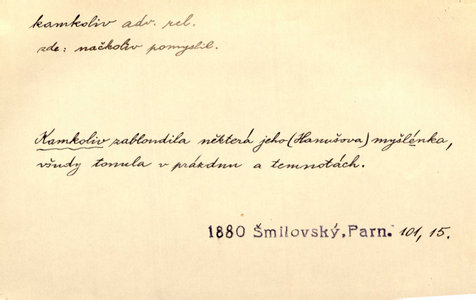 kamkoliv adv. rel.
zde: načkoliv pomyslil.
Kamkoliv zabloudila některá jeho (Hanušova) myšlénka,
všudy tonula v prázdnu a temnotách.
1880 Šmilovský, Parn. 101, 15.